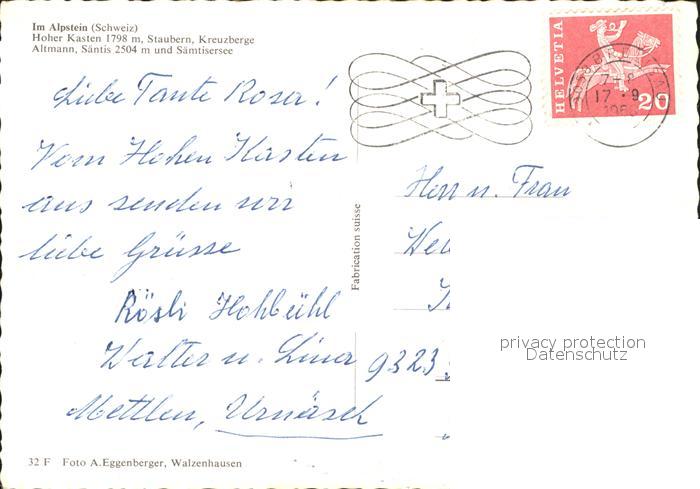 Im Alpstein (Schweiz)
Hoher Kasten 1798 m, Staubern, Kreuzberge
Altmann, Säntis 2504 m und Sämtisersee
HELVETIA
20
17.-9
Liebe Tante Rosa!
Vom Hohen Kasten
aus senden wir
liebe Grüsse
Rösli Hohbühl
Walter u. Lina
Mettlen, Urnäsch
Fabrication suisse
Herr u. Frau
9323
privacy protection
Datenschutz
32 F Foto A.Eggenberger, Walzenhausen